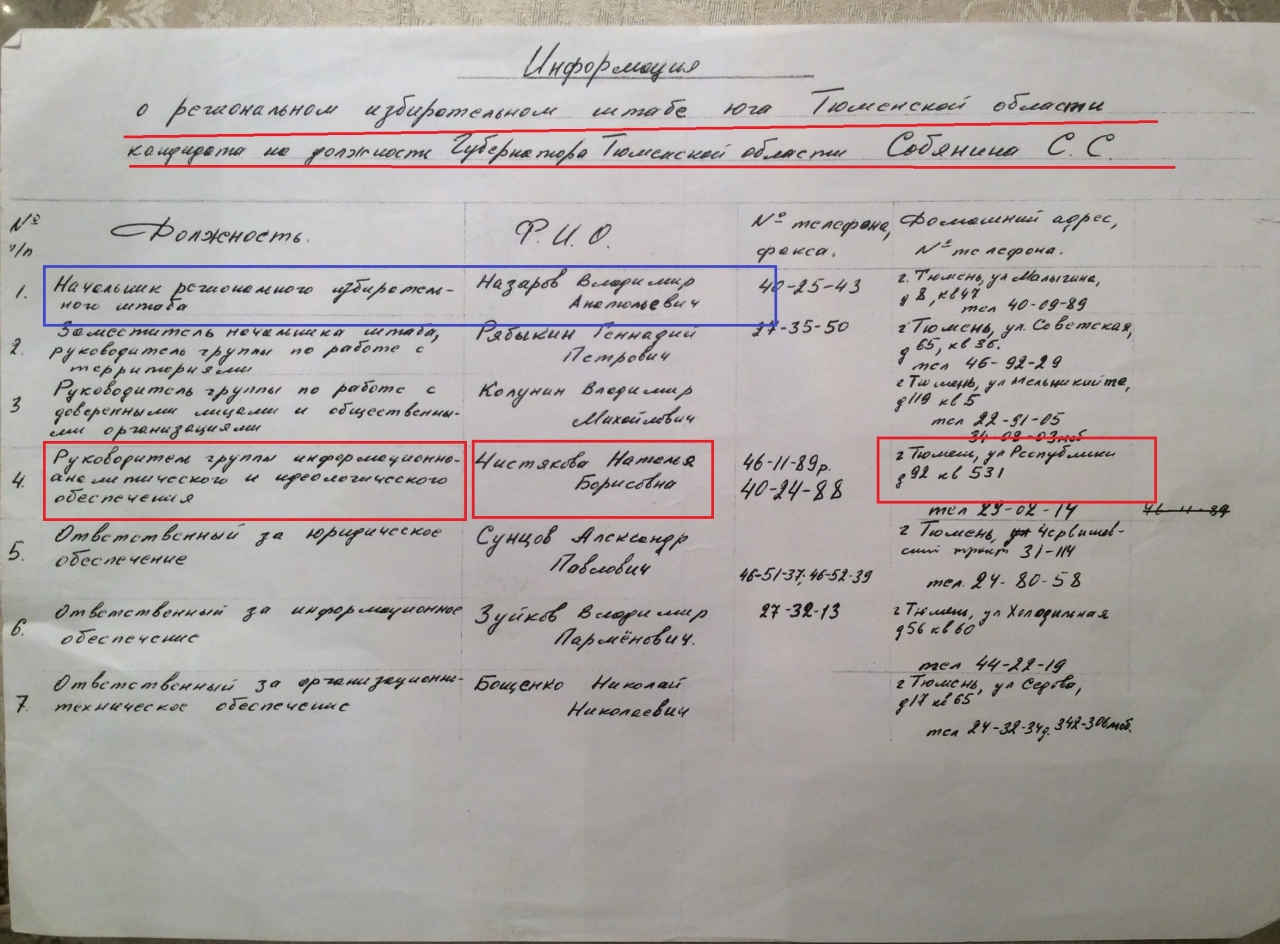 Информация
о региональном избирательном штабе юга Тюменской области
кандидата на должности Губернатора Тюменской области Собянина С. С.
№ п/п
Должность.
Ф. И. О.
№ телефона, факса.
Домашний адрес, № телефона.
1. Начальник регионального избиратель-
ного штаба
Назаров Владимир
Анатольевич
40-25-43
г. Тюмень, ул Малыгина,
д 8, кв 47
тел 40-09-89
2. Заместитель начальника штаба,
руководитель группы по работе с
территориями
Рябыкин Геннадий
Петрович
27-35-50
г Тюмень, ул. Советская,
д 65, кв 36.
тел 46-92-29
3 Руководитель группы по работе с
доверенными лицами и общественны-
ми организациями
Колунин Владимир
Михайлович
г Тюмень, ул Мельникайте,
д 119 кв 5
тел 22-91-05
34-09-03 моб
4. Руководитель группы информационно-
аналитического и идеологического
обеспечения
Чистякова Наталья
Борисовна
46-11-89 р.
40-24-88
г Тюмень, ул Республики
д 92 кв 531
тел 29-02-14
46-11-89
5. Ответственный за юридическое
обеспечение
Сунцов Александр
Павлович
46-51-37; 46-52-39
г Тюмень, ул Червишев-
ский тракт 31-114
тел. 24-80-58
6. Ответственный за информационное
обеспечение
Зуйков Владимир
Парменович.
27-32-13
г Тюмень, ул Холодильная
д 56 кв 60
тел 44-22-19
7. Ответственный за организационно-
техническое обеспечение
Бощенко Николай
Николаевич
г Тюмень, ул Седова,
д 17 кв 65
тел 24-32-34 д. 342-306 моб.